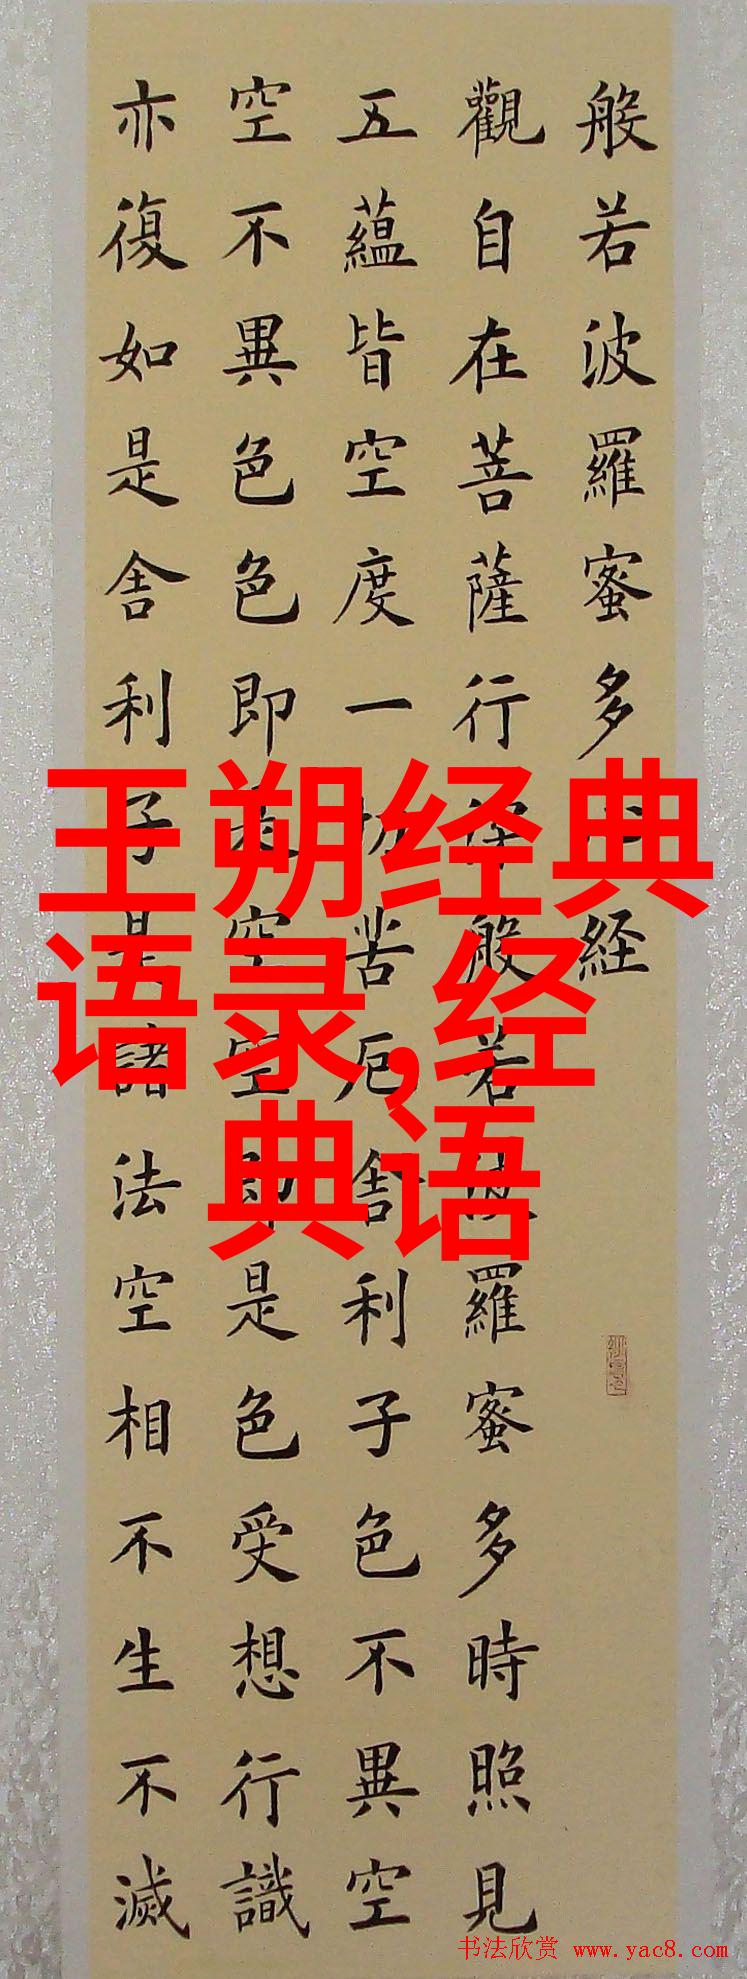 般若波羅蜜多心経
觀自在菩薩行深般若波羅蜜多時照見
五蘊皆空度一切苦厄舍利子色不異空
空不異色色即是空空即是色受想行識
亦復如是舍利子是諸法空相不生不滅
王朔经典
语录,经
典语
书法欣赏 www.yac8.com